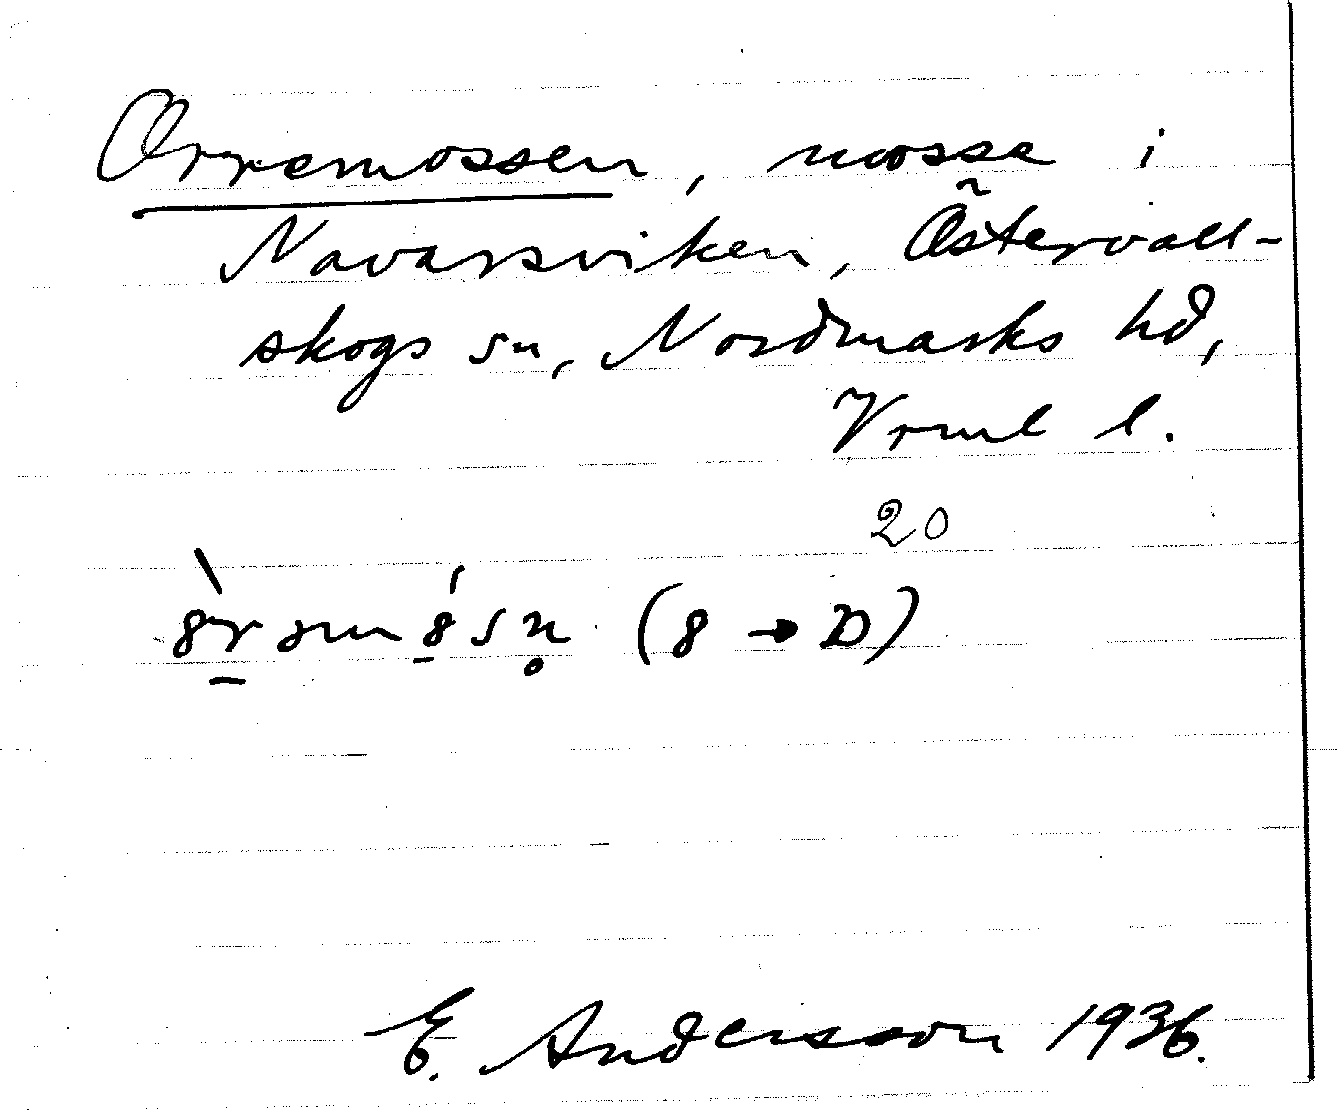 Orremossen, mosse i
Navarsviken, Östervall-
skogs sn, Nordmarks hd,
Vrml l.
20
E. Andersson 1936.